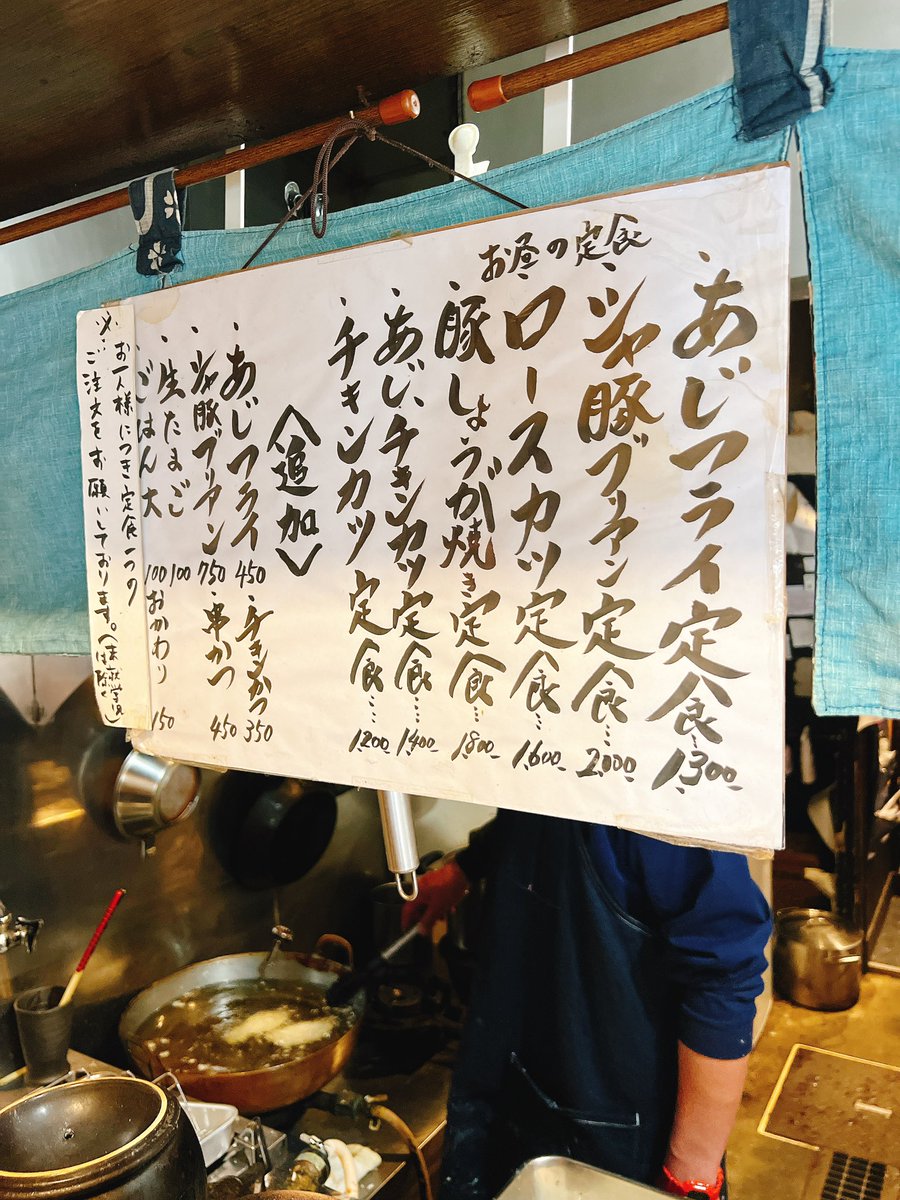 お昼の定食
・あじフライ定食…1,300-
・シャ豚ブリアン定食…2,000-
・ロースカツ定食…1,600-
・豚しょうが焼き定食…1,800-
・あじ、チキンカツ定食…1,400-
・チキンカツ定食…1,200-
〈追加〉
・あじフライ 450
・チキンかつ 350
・シャ豚ブリアン 750
・串かつ 450
・生たまご 100
・ごはん大 100
おかわり 150
※お一人様につき定食一つの
ご注文をお願いしております。(未就学児は除く)